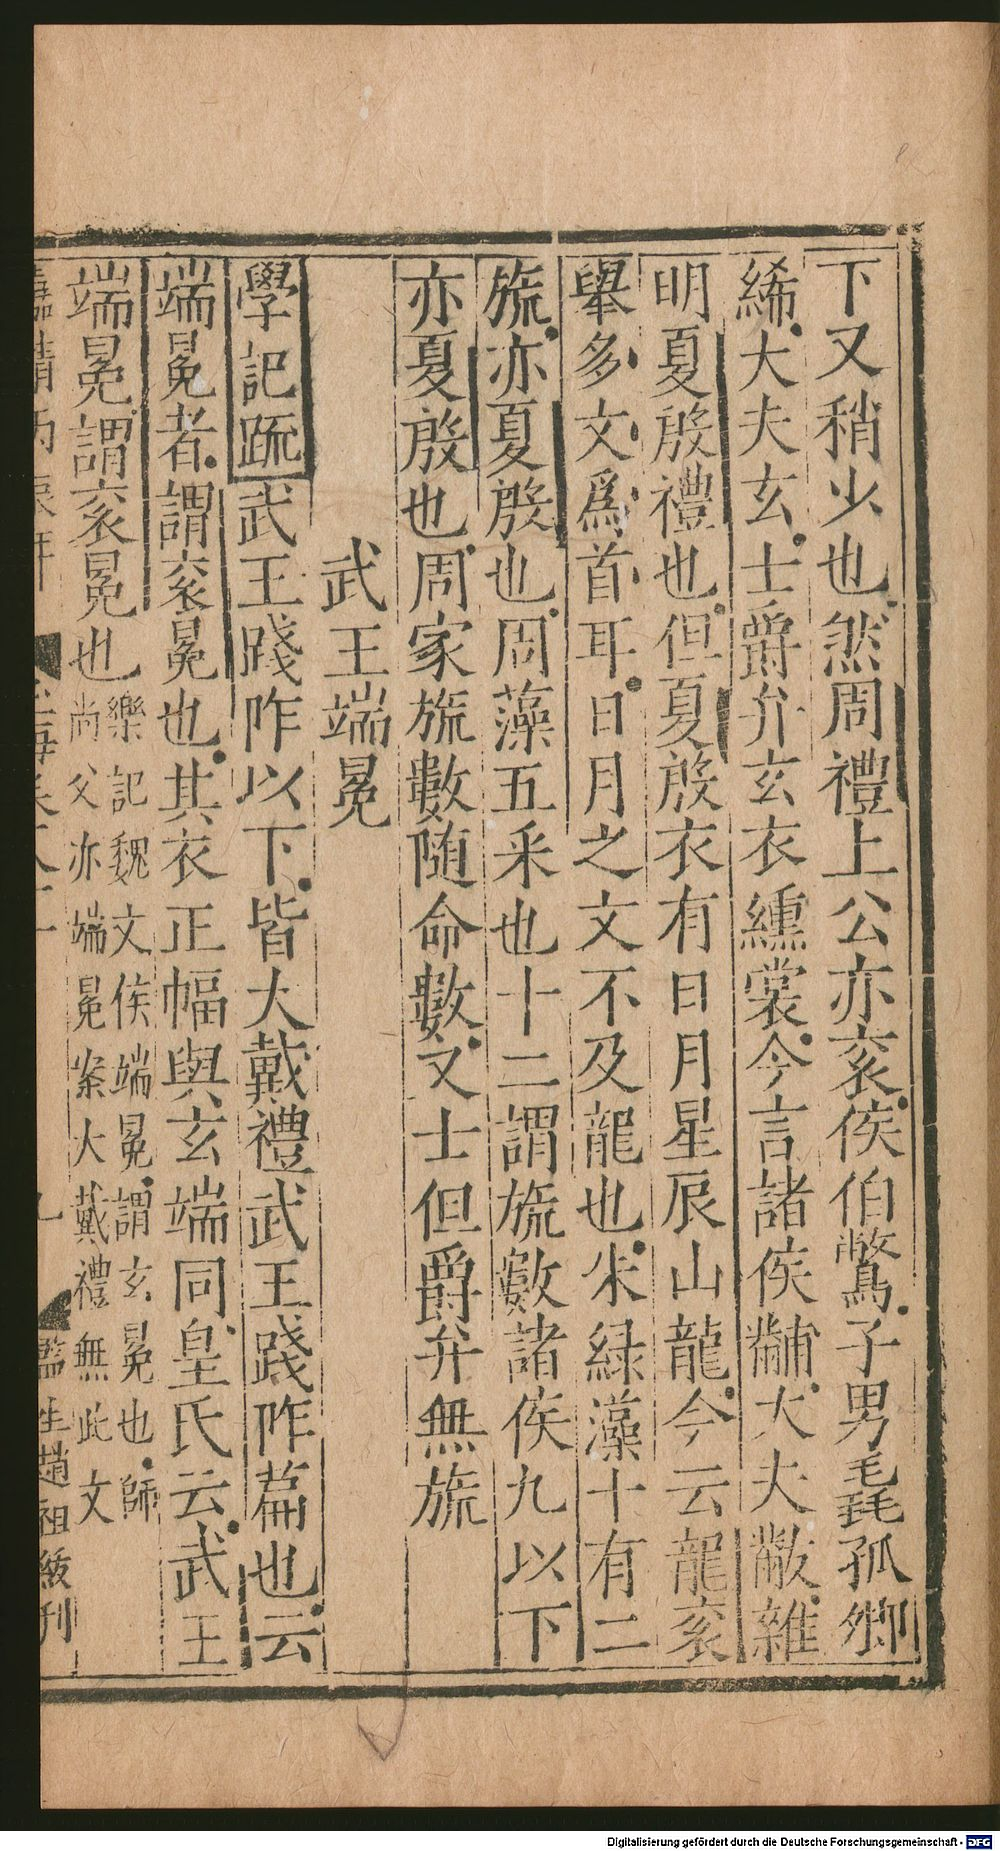 下又稍少也然周禮上公亦衮侯伯鷩子男毳孤卿
絺大夫玄士爵弁玄衣纁裳今言諸侯黼大夫黻雜
明夏殷禮也但夏殷衣有日月星辰山龍今云龍衮
舉多文爲首耳日月之文不及龍也朱綠藻十有二
旒亦夏殷也周藻五采也十二謂旒數諸侯九以下
亦夏殷也周家旒數隨命數又士但爵弁無旒
武王端冕
學記疏武王踐阼以下皆大戴禮武王踐阼篇也云
端冕者謂衮冕也其衣正幅與玄端同皇氏云武王
端冕謂衮冕也樂記魏文侯端冕謂玄冕也師
尚父亦端冕案大戴禮無此文
監生趙祖綬刊
Digitalisierung gefördert durch die Deutsche Forschungsgemeinschaft - DFG